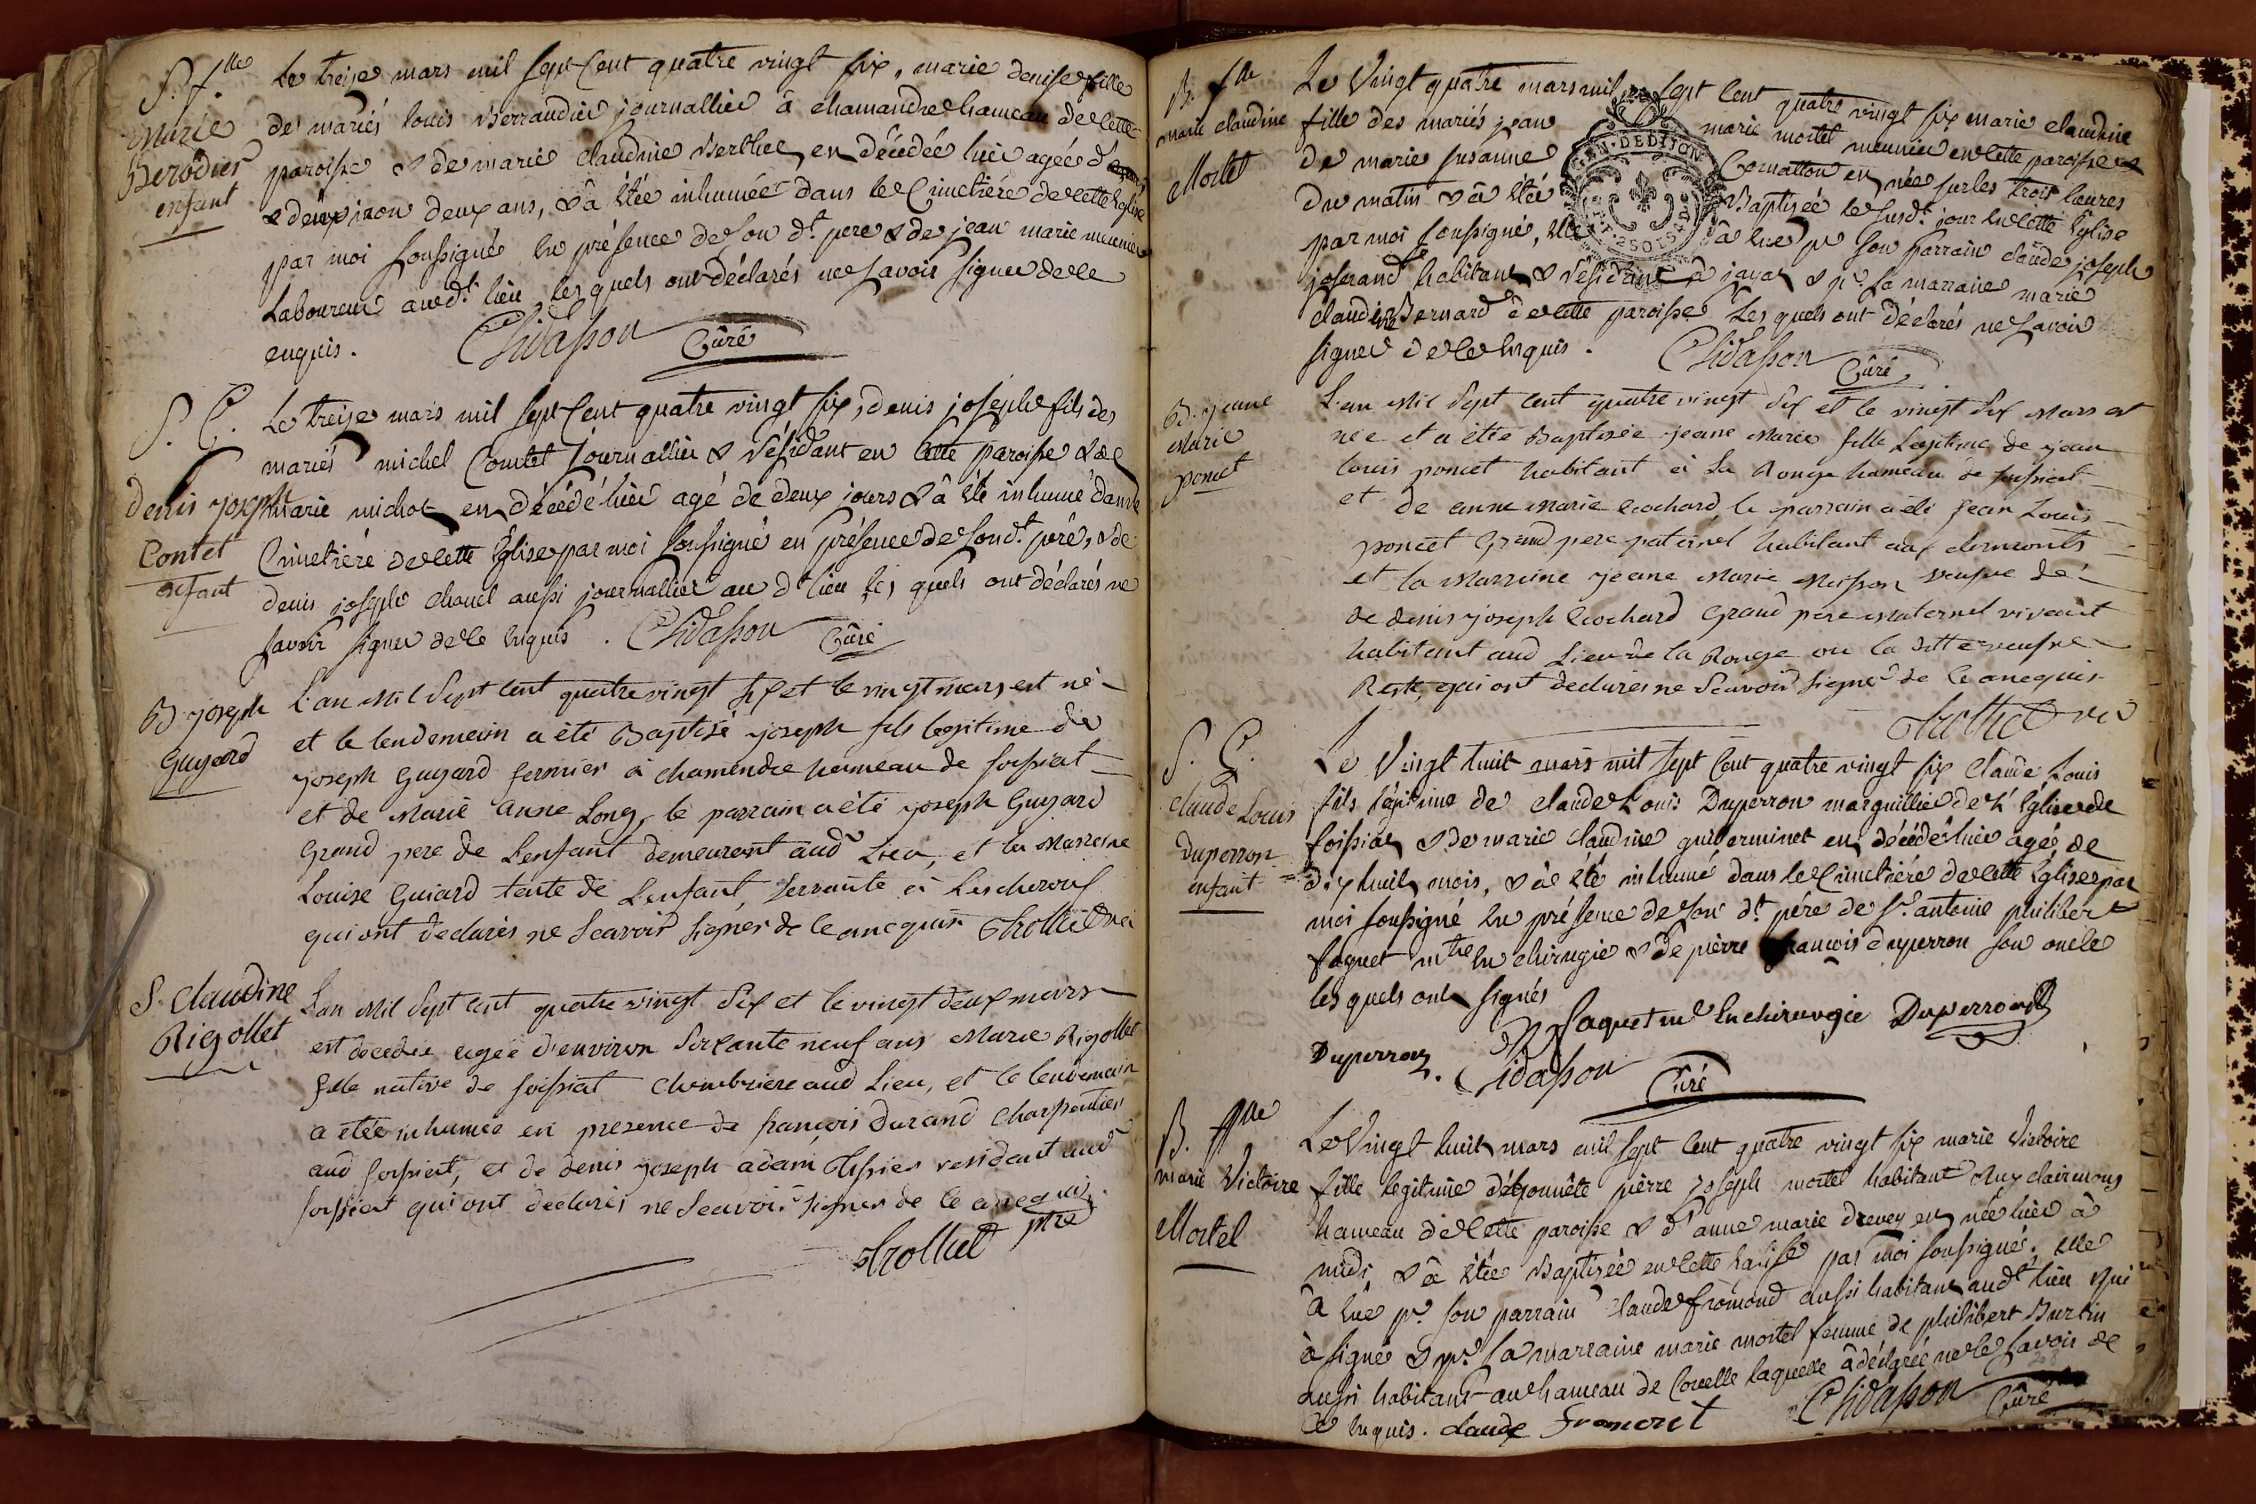 S. f.lle
Marie
Berodier
enfant
Le treise mars mil sept Cent quatre vingt six, marie denise fille
de mariés louis Berraudier journallier à chamandre hameau de cette
paroisse & de marie claudine Berthet en décédée hier agée d'
deux ans, & â étée inhumée dans le Cimetiére de cette Eglise
par moi soussignée en présence de son d.t pere & de jean marie meunier
Laboureur aud.t lieu les quels ont déclarés ne savoir signer de ce
enquis. Chidasson Curé
S. G.
Denis joseph
Contet
enfant
Le treise mars mil sept Cent quatre vingt six, denis joseph fils des
mariés michel Contet journallier & résidant en cette paroisse & de
marie michot en décédé hier agé de deux jours & â été inhumé dans le
Cimetiére de cette Eglise par moi soussigné en présence de son d.t pére, & de
denis joseph chanel aussi journallier au d.t lieu les quels ont déclarés ne
savoir signer de ce enquis. Chidasson Curé
B. joseph
Guyard
L'an Mil Sept cent quatre vingt six et le vingt mars est né
et le lendemain a été Baptisé joseph fils legitime de
joseph Guyard fermier à chamandre hameau de foissiat
et de Marie Anne Long, le parrain a été joseph Guyard
Grand pere de L'enfant demeurant aud. Lieu, et la Marreine
Louise Guiard tante de L'enfant, servante à Lescheroux
qui ont declarés ne Scavoir signer de ce anequis Chollet vic
S. Claudine
Rigollet
L'an Mil Sept cent quatre vingt Six et le vingt deux mars
est decedée agée d'environ Soixante neuf ans Marie Rigollet
fille native de foissiat chambriere aud Lieu, et le lendemain
a étée inhumée en presence de françois Durand charpentier
aud foissiat, et de denis joseph adam résidant aud
foissiat qui ont declarés ne Scavoir signer de ce anequis.
Chollet ptre
B. f.lle
marie claudine
Mortel
Le Vingt quatre mars mil sept Cent quatre vingt six marie claudine
fille des mariés jean marie mortel meunier en cette paroisse &
de marie susanne Cornatton en née sur les trois heures
du matin & â étée Baptisée le susd.t jour en cette Eglise
par moi soussigné, elle â eue p.r son parrain claude joseph
joserand habitant & résidant à jayat & p.r sa marraine marie
claudine Bernard de cette paroisse Les quels ont déclarés ne savoir
signer de ce enquis. Chidasson Curé
GEN. DE DIJON
B. jeane
Marie
ponct
L'an Mil Sept cent quatre vingt Six et le vingt six Mars est
née et a étée Baptisée jeane Marie fille Legitime de jean
Louis poncet habitant à La Rouge hameau de foissiat
et de anne Marie cochard, le parrain a été jean Louis
poncet Grand pere paternel habitant aux clermonts
et la Marreine jeane Marie Maisson veufve de
de denis joseph cochard Grand pere Maternel vivant
habitant aud Lieu de la Rouge ou la ditte veufve
Reste, qui ont declarés ne Scavoir signer de ce anequis
Chollet vic
S. G.
Claude Louis
Duperron
enfant
Le Vingt huit mars mil sept Cent quatre vingt six Claude Louis
fils légitime de claude Louis Duperron marguillier de l'Eglise de
foissiat & de marie claudine guillerminet en décédé hier agé de
dix huit mois, & â été inhumé dans le Cimetiére de cette Eglise par
moi soussigné en présence de son d.t pére de S.r antoine philibert
faquet m.tre en chirugie & de pièrre françois duperron son oncle
les quels ont signés
Faquet m.e En chirurgie Duperron
Duperron. Chidasson Curé
B. f.lle
marie Victoire
Mortel
Le Vingt huit mars mil sept Cent quatre vingt six marie Victoire
fille legitime d'éhonnête pièrre joseph mortel habitant aux clairmons
hameau de cette paroisse & d'anne marie drevey en née hier à
midi, & â étée Baptisée en cette Eglise par moi soussigné. elle
â eue p.r son parrain claude fromond aussi habitant aud.t lieu qui
à signé & p.r sa marraine marie mortel femme de philibert Burtin
aussi habitant au hameau de Corcelle laquelle â déclarée ne le savoir de
ce enquis. claude fromont Chidasson Curé